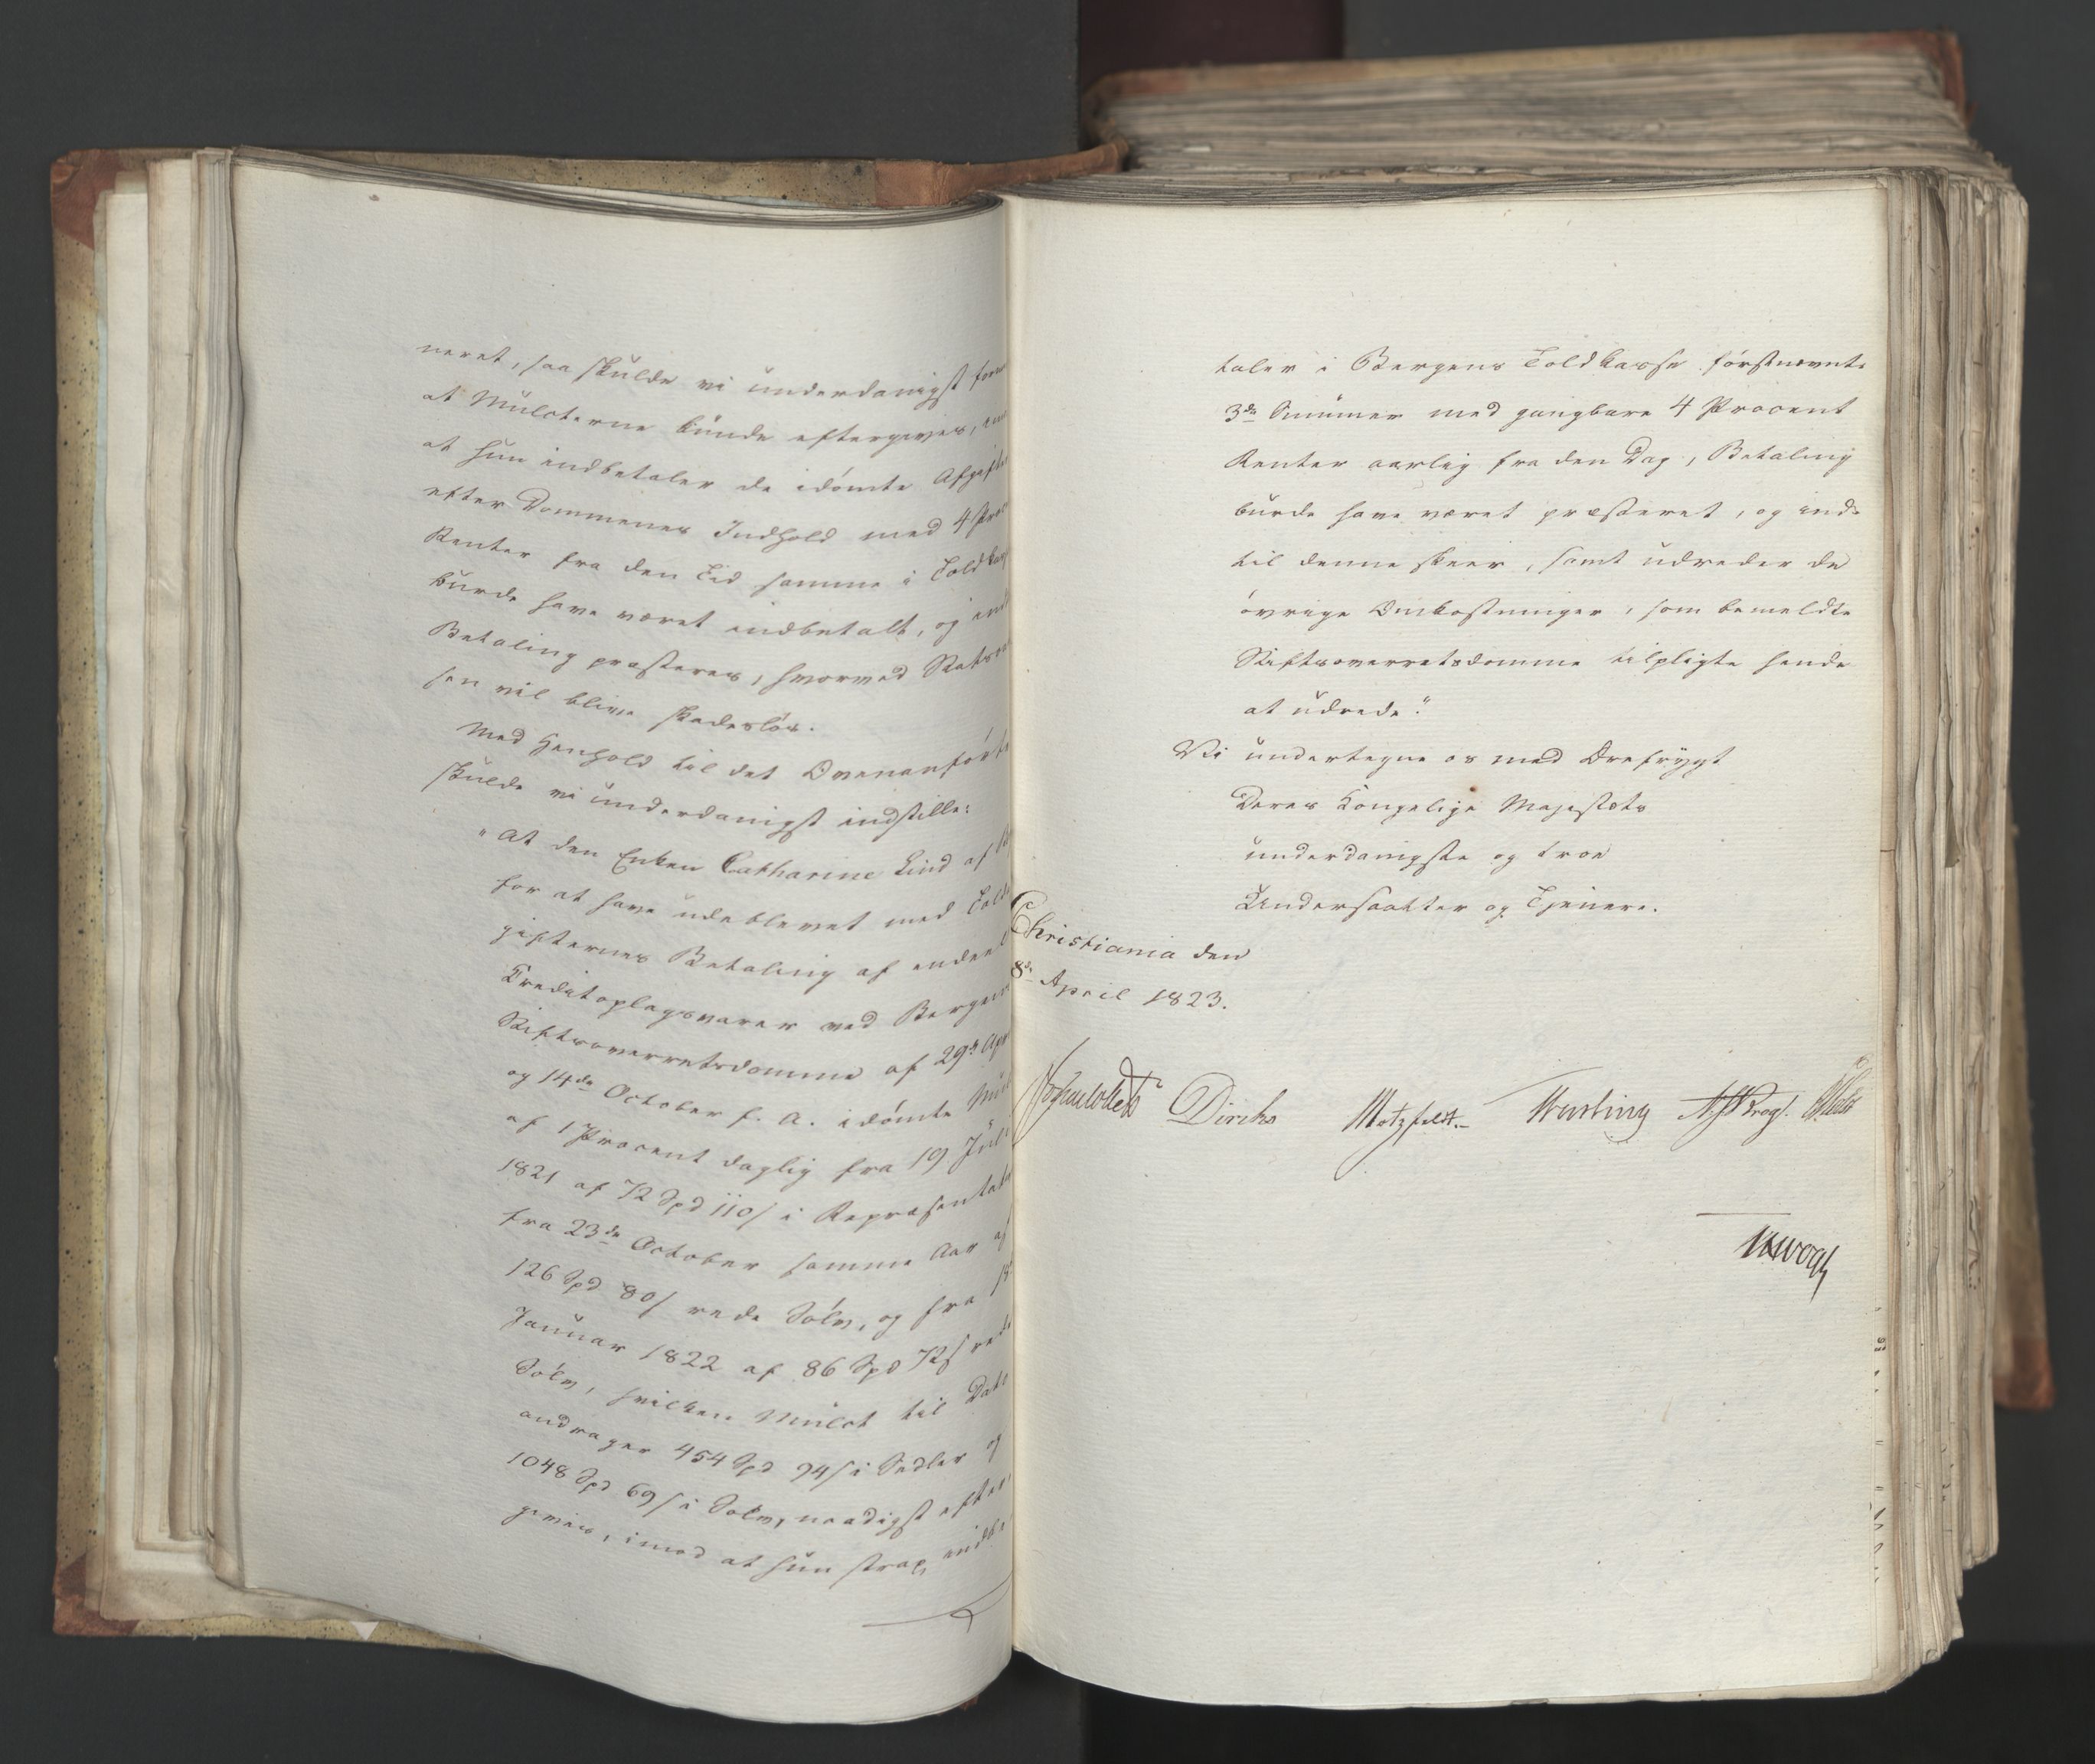 neret, saa skulde vi underdanigst
at Mulcterne kunde eftergives,
at hun indbetaler de idömte
efter Dommenes Indhold med 4
Renter fra den Tid samme i
burde have været indbetalt, og
Betaling præsteres, hvorved
sen vil blive skadeslös.
Med Henhold til det Ovenanförte
skulde vi underdanigst indstille:
"At den Enken Catharine Lind af
for at have udeblevet med
gifternes Betaling af endeel
Creditoplagsvarer ved Bergens
Stiftsoverretsdomme af 29de
og 14de October f. A. idömte
af 1 Procent daglig fra 19 Juli
1821 af 72 Spd 110 s i
fra 23de October samme Aar af
126 Spd 80 s rede Sölv, og fra
Januar 1822 af 86 Spd 72 s rede
Sölv, hvilken Mulct til Dato
andrager 454 Spd 94 s i Sedler og
1048 Spd 69 s i Sölv, naadigst efter
gives, imod at hun strax indbe
taler i Bergens Toldkasse förstnevnte
3de Summer med gangbare 4 Procent
Renter aarlig fra den Dag, Betaling
burde have været præsteret, og ind-
til denne skeer, samt udreder de
övrige Omkostninger, som bemeldte
Stiftsoverretsdomme tilpligte hende
at udrede."
Vi undertegne os med Ærefrygt
Deres Kongelige Majestæts
underdanigste og troe
Undersaatter og Tjenere.
Christiania den
8de April 1823.
Diriks Motzfeldt.